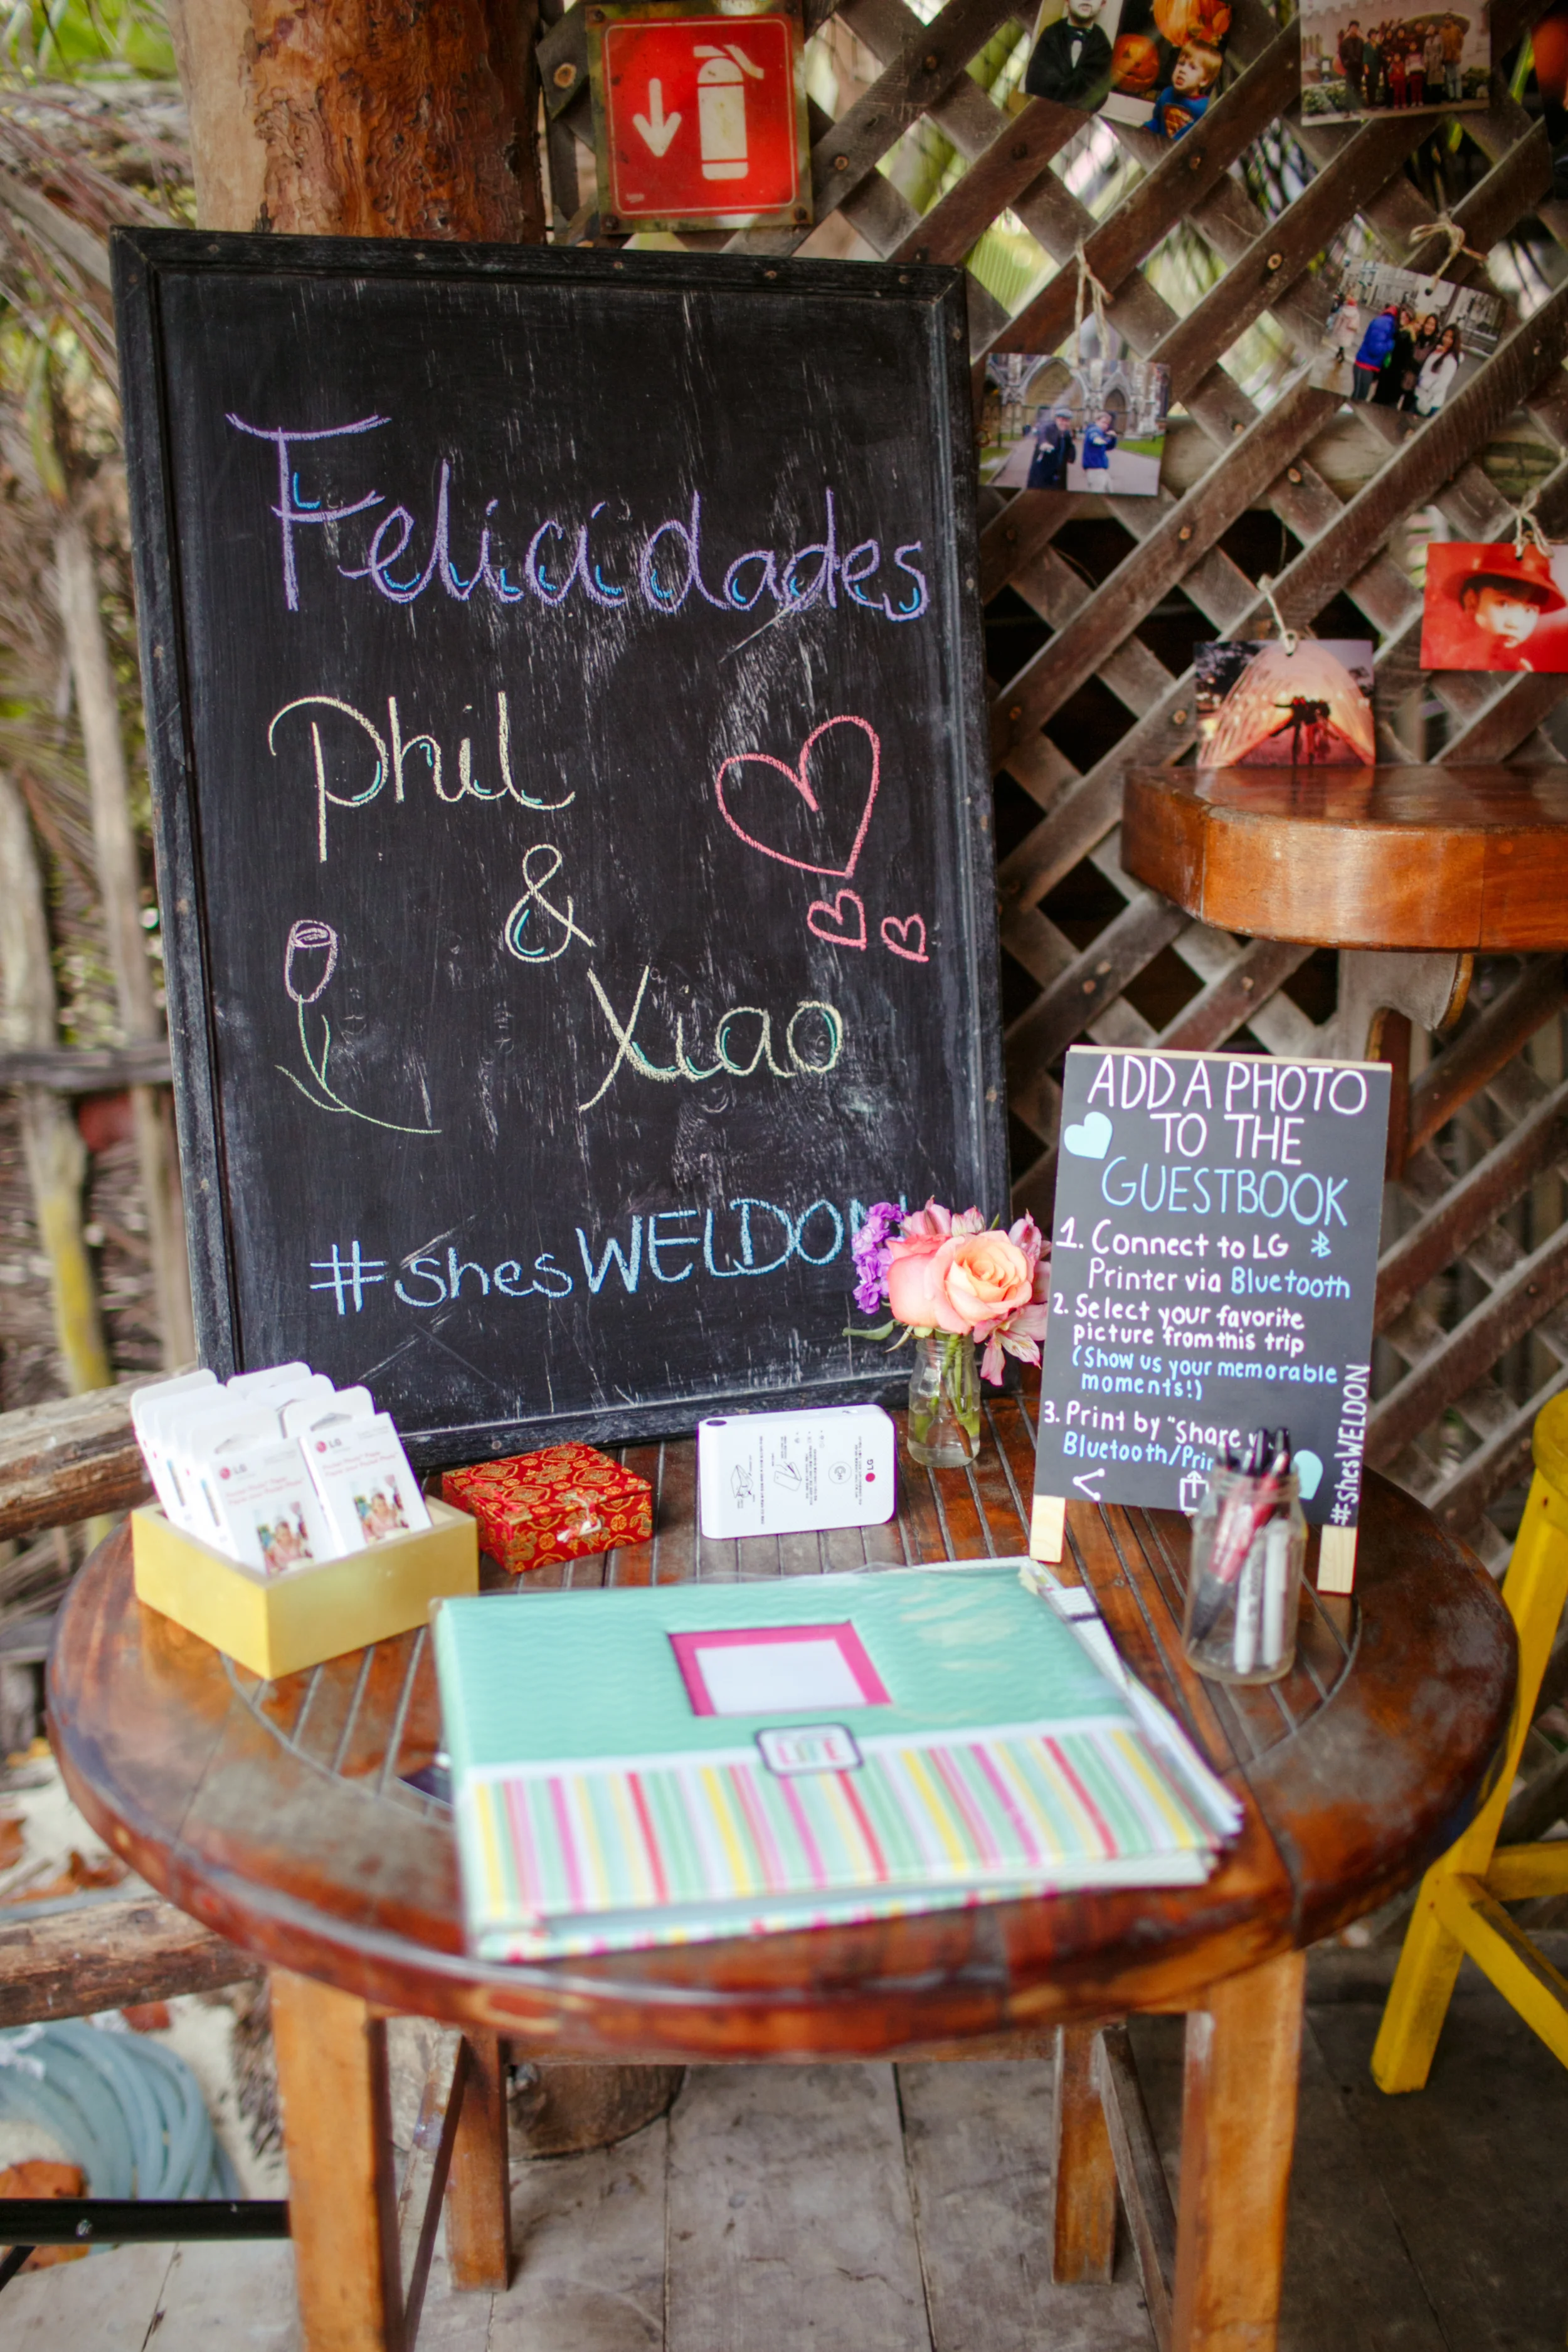 Felicidades
Phil
&
Xiao
#shesWELDON
ADD A PHOTO
TO THE
GUESTBOOK
1. Connect to LG
Printer via Bluetooth
2. Select your favorite
picture from this trip
(Show us your memorable
moments!)
3. Print by "Share
Bluetooth/Prin
#shesWELDON
LG
LG
LG
LIFE